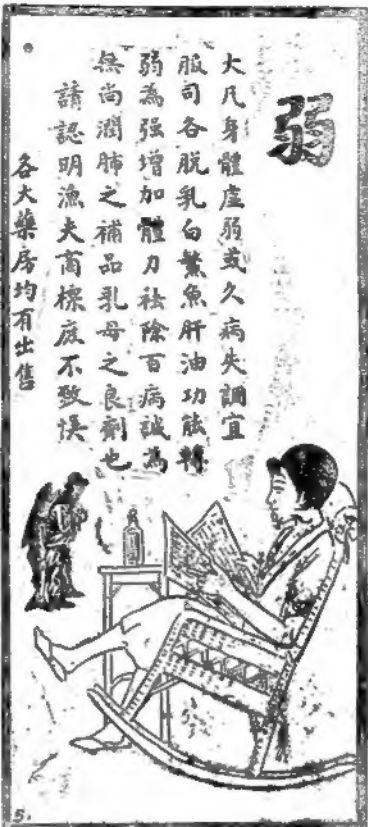 弱
大凡身體虛弱或久病失調宜
服司各脱乳白鰵魚肝油功能轉
弱為强增加體力祛除百病誠為
無尚潤肺之補品乳母之良劑也
請認明漁夫商標庶不致悮
各大藥房均有出售
5.